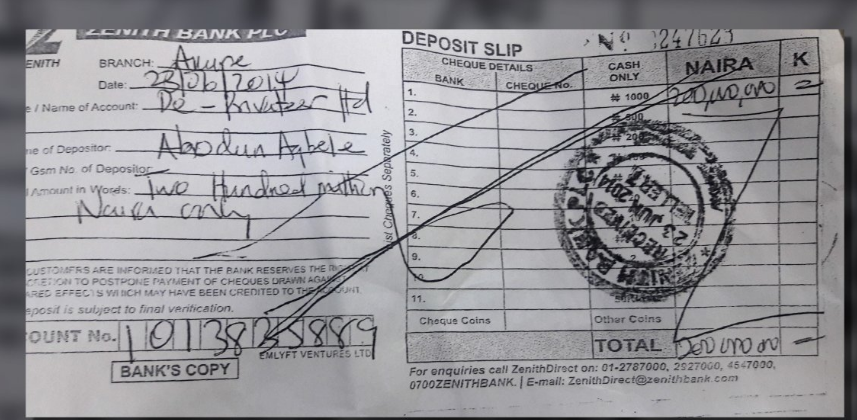 ZENITH BANK PLC
ZENITH
BRANCH: Akure
Date: 23/06/2014
e / Name of Account: De - Privateer Ltd
me of Depositor: Abiodun Agbele
Gsm No. of Depositor
Amount in Words: Two Hundred million
Naira only
CUSTOMERS ARE INFORMED THAT THE BANK RESERVES THE
CRETION TO POSTPONE PAYMENT OF CHEQUES DRAWN AGAINST
ARED EFFECTS WHICH MAY HAVE BEEN CREDITED TO THE ACCOUNT.
eposit is subject to final verification.
OUNT No.
EMLYFT VENTURES LTD
BANK'S COPY
st Cheques Separately
DEPOSIT SLIP
CHEQUE DETAILS
BANK
CHEQUE No.
CASH ONLY
NAIRA
K
1.
₦ 1000
200,000,000
=
2.
₦ 500
3.
₦ 200
4.
5.
6.
7.
8.
9.
11.
Cheque Coins
Other Coins
TOTAL
200,000,000
ZENITH BANK PLC
RECEIVED
23 JUN 2014
TELLER
For enquiries call ZenithDirect on: 01-2787000, 2927000, 4647000,
0700ZENITHBANK. | E-mail: ZenithDirect@zenithbank.com